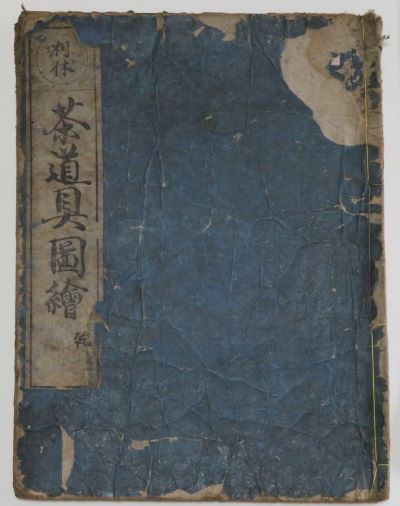 利休
茶道具圖繪
乾